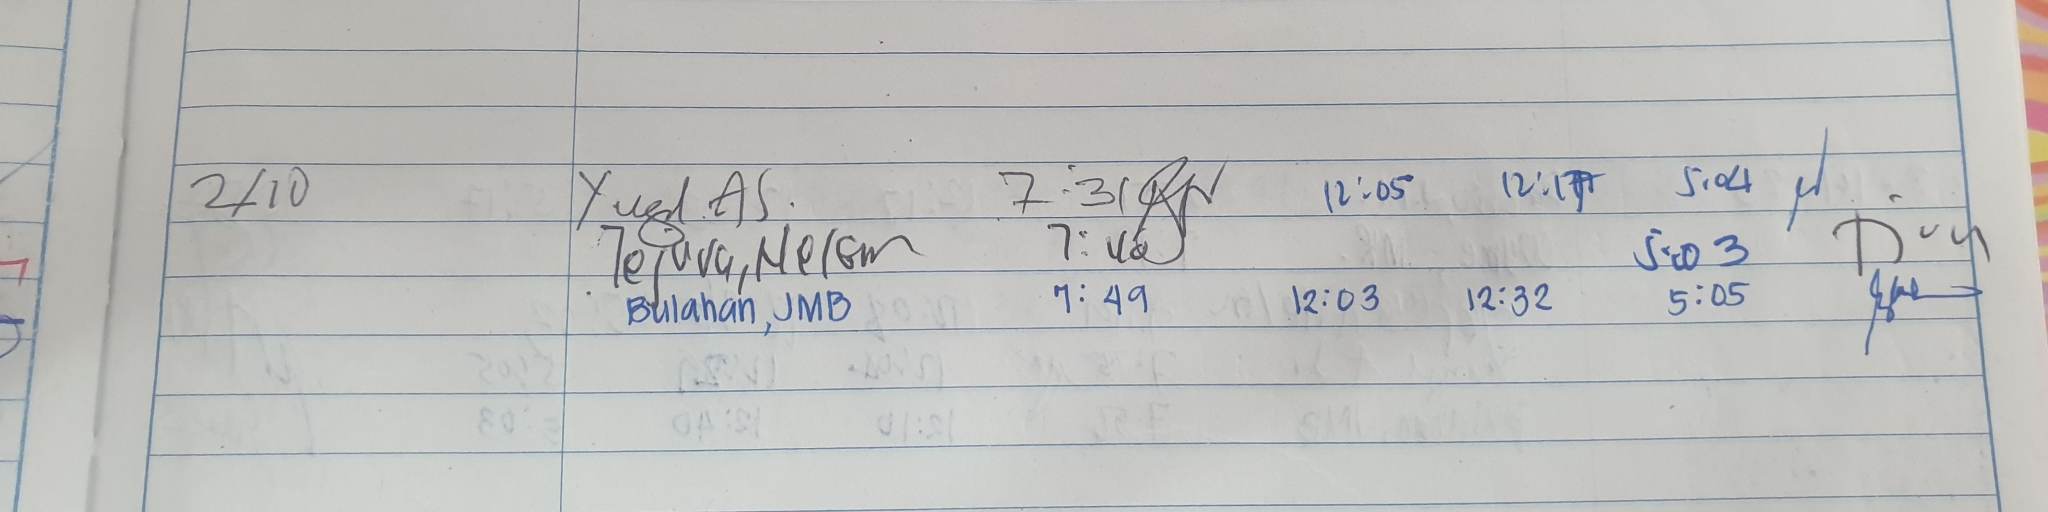 2/10 Yugd. AS. 7:31 12:05 12:17 5:04
Tejuva, Nelson 7:46 5:03
Bulahan, JMB 7:49 12:03 12:32 5:05